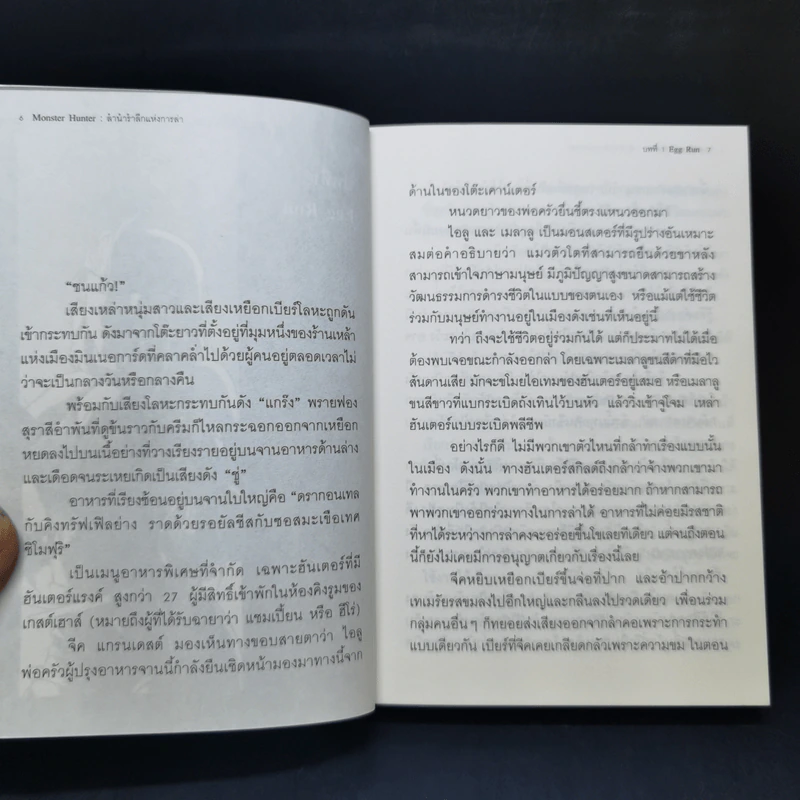 6 Monster Hunter : ลำนำรำลึกแห่งการล่า
"ชนแก้ว!"
เสียงเหล่าหนุ่มสาวและเสียงเหยือกเบียร์โลหะถูกดัน
เข้ากระทบกัน ดังมาจากโต๊ะยาวที่ตั้งอยู่ที่มุมหนึ่งของร้านเหล้า
แห่งเมืองมินเนอการ์ดที่คลาคล่ำไปด้วยผู้คนอยู่ตลอดเวลาไม่
ว่าจะเป็นกลางวันหรือกลางคืน
พร้อมกับเสียงโลหะกระทบกันดัง "แกร๊ง" พรายฟอง
สุราสีอำพันที่ดูข้นราวกับครีมก็ไหลกระฉอกออกจากเหยือก
หยดลงไปบนเนื้อย่างที่วางเรียงรายอยู่บนจานอาหารด้านล่าง
และเดือดจนระเหยเกิดเป็นเสียงดัง "ซู่"
อาหารที่เรียงซ้อนอยู่บนจานใบใหญ่คือ "ดรากอนเทล
กับคิงทรัฟเฟิลย่าง ราดด้วยรอยัลชีสกับซอสมะเขือเทศ
ชิโมฟุริ"
เป็นเมนูอาหารพิเศษที่จำกัด เฉพาะฮันเตอร์ที่มี
ฮันเตอร์แรงค์ สูงกว่า 27 ผู้มีสิทธิ์เข้าพักในห้องคิงรูมของ
เกสต์เฮาส์ (หมายถึงผู้ที่ได้รับฉายาว่า แชมเปี้ยน หรือ ฮีโร่)
จีค แกรนเดสต์ มองเห็นทางขอบสายตาว่า ไอลู
พ่อครัวผู้ปรุงอาหารจานนี้กำลังยืนเชิดหน้ามองมาทางนี้จาก
บทที่ 1 Egg Run 7
ด้านในของโต๊ะเคาน์เตอร์
หนวดยาวของพ่อครัวยื่นชี้ตรงแหนวออกมา
ไอลู และ เมลาลู เป็นมอนสเตอร์ที่มีรูปร่างอันเหมาะ
สมต่อคำอธิบายว่า แมวตัวโตที่สามารถยืนด้วยขาหลัง
สามารถเข้าใจภาษามนุษย์ มีภูมิปัญญาสูงขนาดสามารถสร้าง
วัฒนธรรมการดำรงชีวิตในแบบของตนเอง หรือแม้แต่ใช้ชีวิต
ร่วมกับมนุษย์ทำงานอยู่ในเมืองดังเช่นที่เห็นอยู่นี้
ทว่า ถึงจะใช้ชีวิตอยู่ร่วมกันได้ แต่ก็ประมาทไม่ได้เมื่อ
ต้องพบเจอขณะกำลังออกล่า โดยเฉพาะเมลาลูขนสีดำที่มือไว
สันดานเสีย มักจะขโมยไอเทมของฮันเตอร์อยู่เสมอ หรือเมลาลู
ขนสีขาวที่แบกระเบิดถังเทินไว้บนหัว แล้ววิ่งเข้าจู่โจม เหล่า
ฮันเตอร์แบบระเบิดพลีชีพ
อย่างไรก็ดี ไม่มีพวกเขาตัวไหนที่กล้าทำเรื่องแบบนั้น
ในเมือง ดังนั้น ทางฮันเตอร์สกิลด์ถึงกล้าว่าจ้างพวกเขามา
ทำงานในครัว พวกเขาทำอาหารได้อร่อยมาก ถ้าหากสามารถ
พาพวกเขาออกร่วมทางในการล่าได้ อาหารที่ไม่ค่อยมีรสชาติ
ที่หาได้ระหว่างการล่าคงจะอร่อยขึ้นโขเลยทีเดียว แต่จนถึงตอน
นี้ก็ยังไม่เคยมีการอนุญาตเกี่ยวกับเรื่องนี้เลย
จีคหยิบเหยือกเบียร์ขึ้นจ่อที่ปาก และอ้าปากกว้าง
เทเมรัยรสขมลงไปอึกใหญ่และกลืนลงไปรวดเดียว เพื่อนร่วม
กลุ่มคนอื่นๆ ก็ทยอยส่งเสียงออกจากลำคอเพราะการกระทำ
แบบเดียวกัน เบียร์ที่จีคเคยเกลียดกลัวเพราะความขม ในตอน